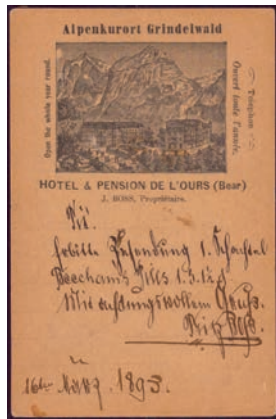 Alpenkurort Grindelwald
Open the whole year round.
Ouvert toute l'année.
Telephon
HOTEL & PENSION DE L'OURS (Bear)
J. BOSS, Propriétaire.
Erbitte Zusendung 1. Schachtel
Beecham's Pills
Mit achtungsvollem Gruss.
Boss.
16ten März 1893.